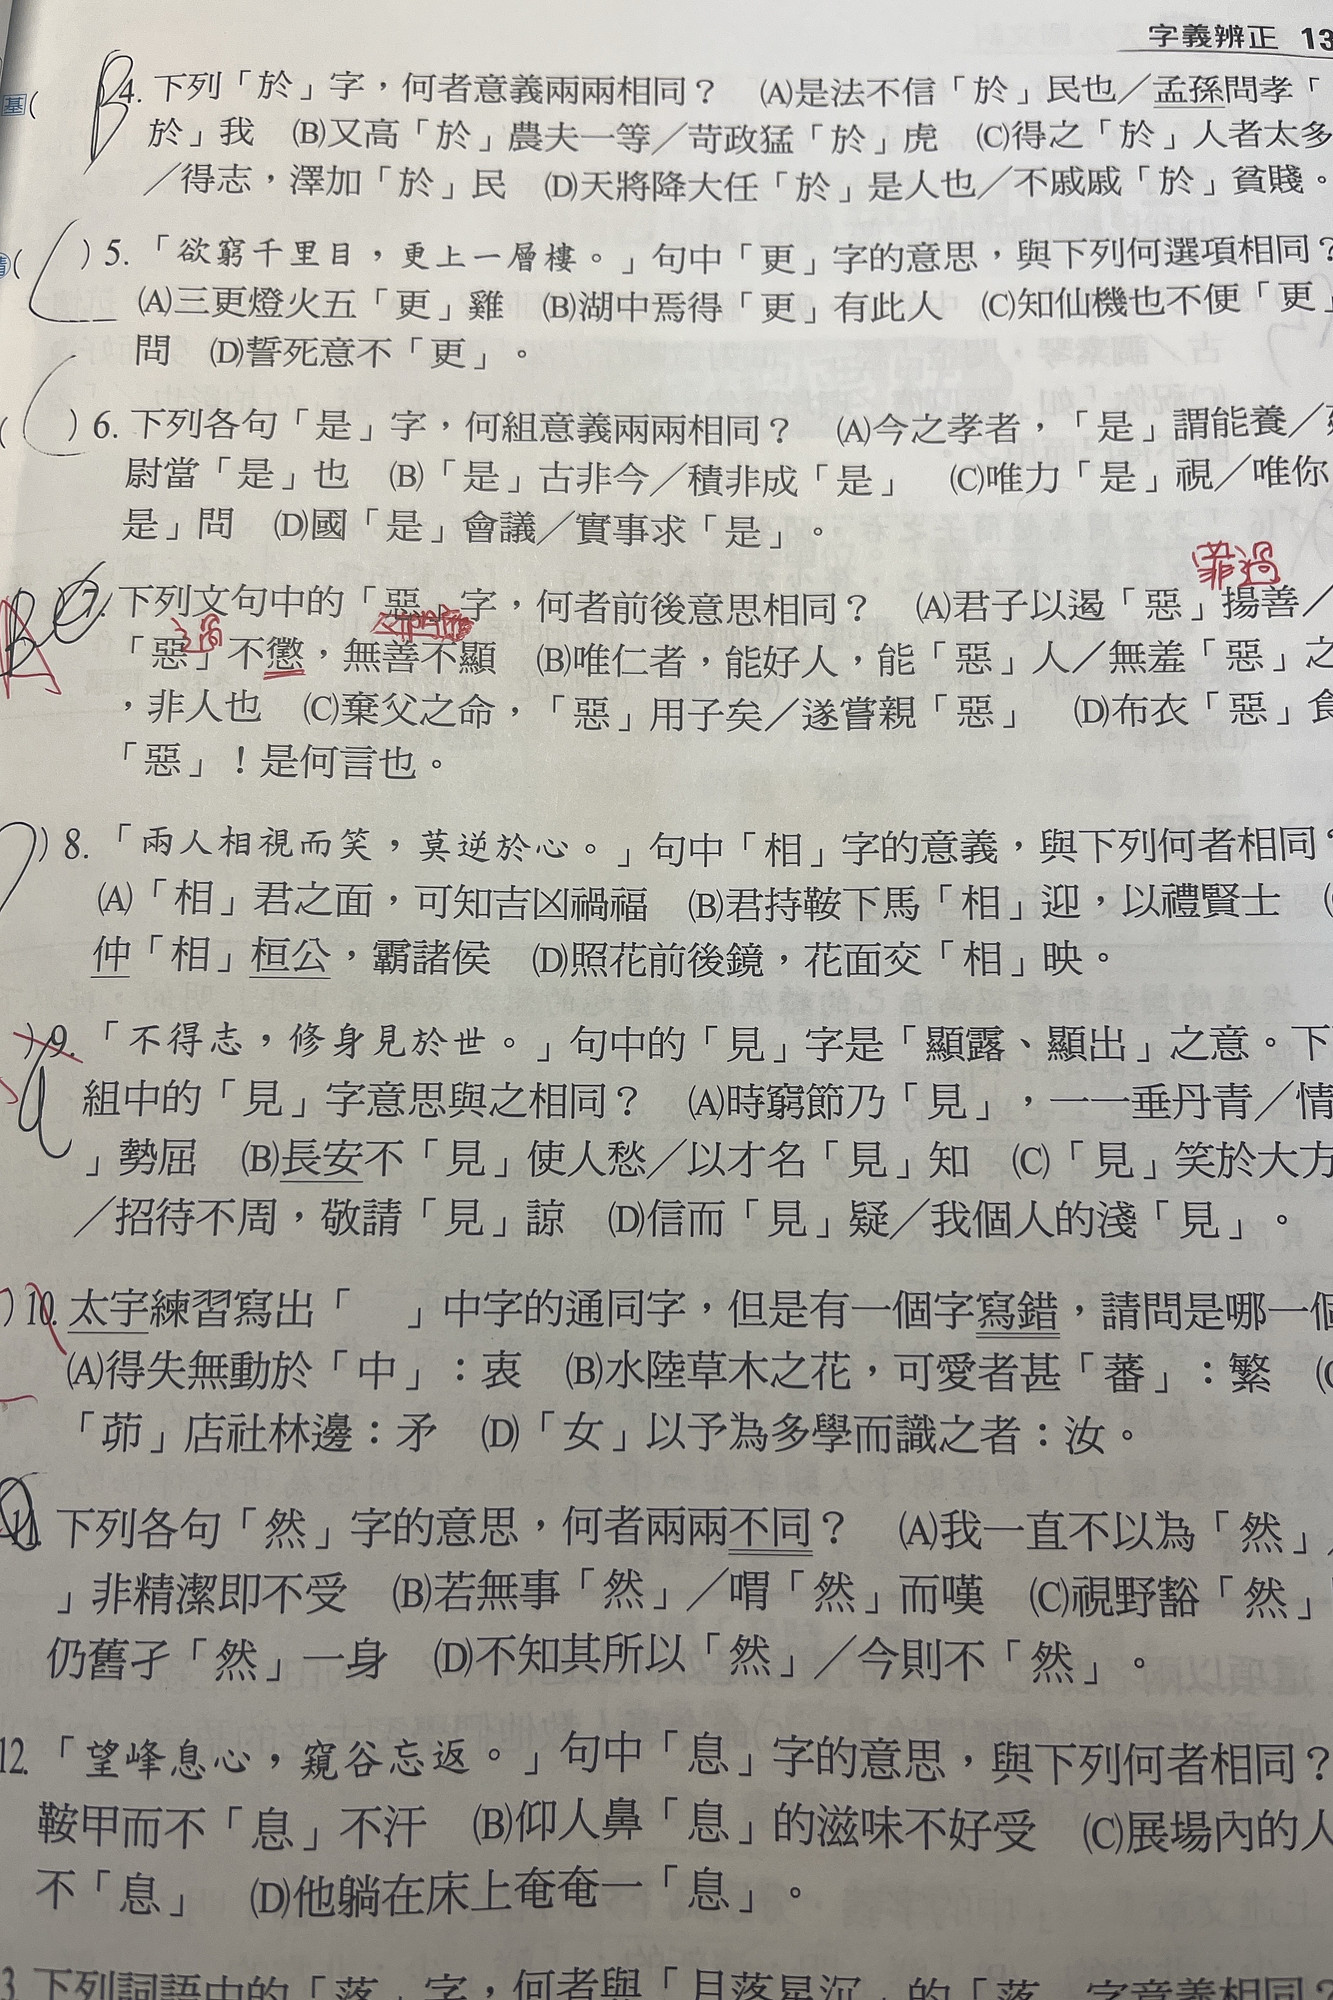 字義辨正 13
基( B 4. 下列「於」字，何者意義兩兩相同？ (A)是法不信「於」民也／孟孫問孝「
於」我 (B)又高「於」農夫一等／苛政猛「於」虎 (C)得之「於」人者太多
／得志，澤加「於」民 (D)天將降大任「於」是人也／不戚戚「於」貧賤。
( )5. 「欲窮千里目，更上一層樓。」句中「更」字的意思，與下列何選項相同？
(A)三更燈火五「更」雞 (B)湖中焉得「更」有此人 (C)知仙機也不便「更」
問 (D)誓死意不「更」。
( )6. 下列各句「是」字，何組意義兩兩相同？ (A)今之孝者，「是」謂能養／
尉當「是」也 (B)「是」古非今／積非成「是」 (C)唯力「是」視／唯你
是」問 (D)國「是」會議／實事求「是」。
罪過
7. 下列文句中的「惡」字，何者前後意思相同？ (A)君子以遏「惡」揚善／
過
「惡」不懲，無善不顯 (B)唯仁者，能好人，能「惡」人／無羞「惡」之
，非人也 (C)棄父之命，「惡」用子矣／遂嘗親「惡」 (D)布衣「惡」食
「惡」！是何言也。
)8. 「兩人相視而笑，莫逆於心。」句中「相」字的意義，與下列何者相同？
(A)「相」君之面，可知吉凶禍福 (B)君持鞍下馬「相」迎，以禮賢士 (
仲「相」桓公，霸諸侯 (D)照花前後鏡，花面交「相」映。
)9. 「不得志，修身見於世。」句中的「見」字是「顯露、顯出」之意。下
組中的「見」字意思與之相同？ (A)時窮節乃「見」，一一垂丹青／情
」勢屈 (B)長安不「見」使人愁／以才名「見」知 (C)「見」笑於大方
／招待不周，敬請「見」諒 (D)信而「見」疑／我個人的淺「見」。
)10. 太宇練習寫出「　」中字的通同字，但是有一個字寫錯，請問是哪一個
(A)得失無動於「中」：衷 (B)水陸草木之花，可愛者甚「蕃」：繁 (
「茆」店社林邊：矛 (D)「女」以予為多學而識之者：汝。
11. 下列各句「然」字的意思，何者兩兩不同？ (A)我一直不以為「然」
」非精潔即不受 (B)若無事「然」／喟「然」而嘆 (C)視野豁「然」
仍舊孑「然」一身 (D)不知其所以「然」／今則不「然」。
12. 「望峰息心，窺谷忘返。」句中「息」字的意思，與下列何者相同？
鞍甲而不「息」不汗 (B)仰人鼻「息」的滋味不好受 (C)展場內的人
不「息」 (D)他躺在床上奄奄一「息」。
3. 下列詞語中的「落」字，何者與「月落星沉」的「落」字意義相同？